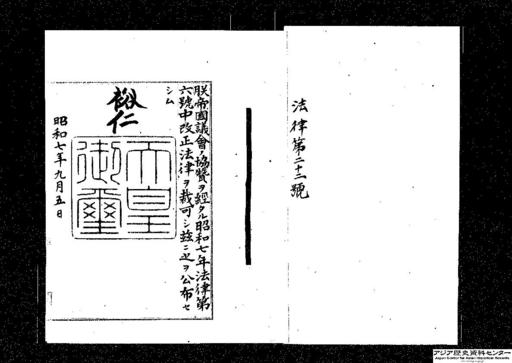 法律第二十二號
朕帝國議會ノ協賛ヲ經タル昭和七年法律第
六號中改正法律ヲ裁可シ茲ニ之ヲ公布セ
シム
裕仁
天皇御璽
昭和七年九月五日
アジア歴史資料センター
Japan Center for Asian Historical Records